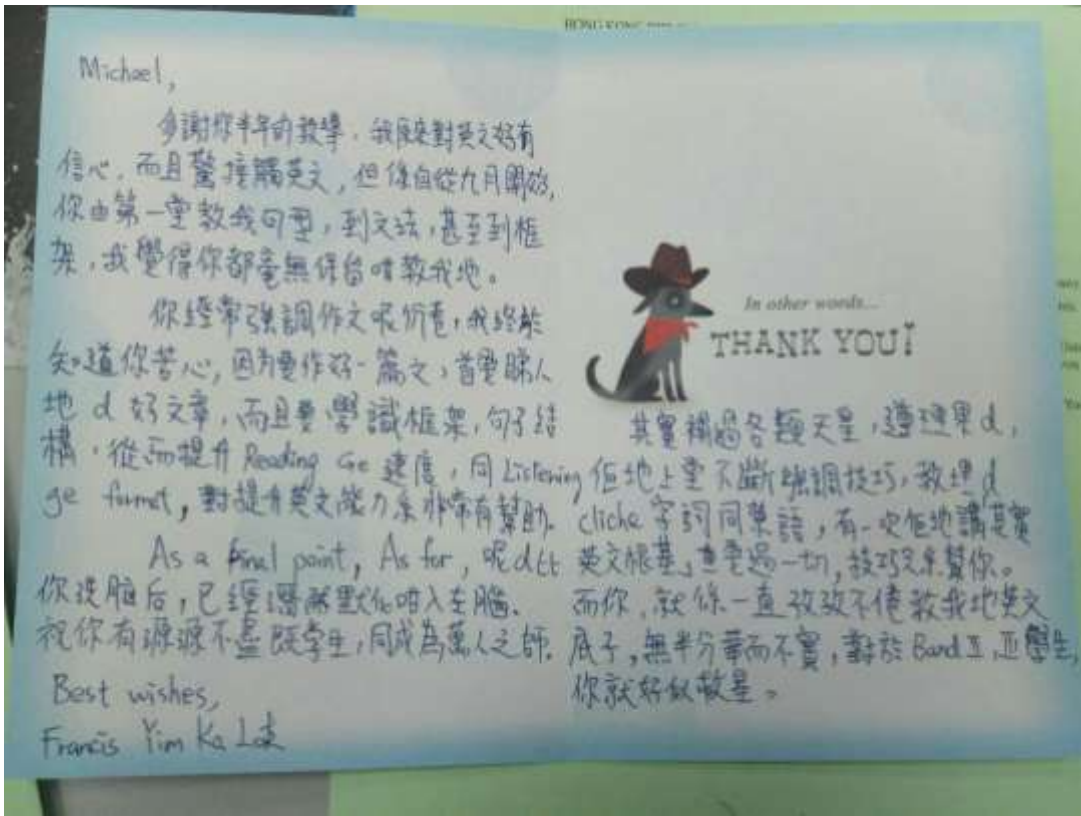 HONG KONG
Michael,
多謝你半年的教學，我原來對英文好有
信心，而且驚接觸英文，但係自從九月開始，
你由第一堂教我句型，到文法，甚至到框
架，我覺得你都毫無保留咁教我地。
你經常強調作文呢份卷，我終於
知道你苦心，因為要作好一篇文，首要睇人
地 d 好文章，而且要學識框架，句子結
構，從而提升 Reading Ge 速度，同 Listening
ge format，對提升英文能力系非常有幫助。
As a final point, As for, 呢d
你洗腦后，已經潛移默化咁入左腦。
祝你有源源不盡既学生，同成為萬人之師。
Best wishes,
Francis Yim Ka Lok
In other words...
THANK YOU!
其實補過各類天星，遵理果d，
佢地上堂不斷強調技巧，教埋d
cliche 字詞同潮語，有一次佢地講其實
英文根基，重要過一切，技巧只系幫你。
而你，就係一直孜孜不倦教我地英文
底子，無半分華而不實，對於 Band II, III 學生，
你就好似救星。